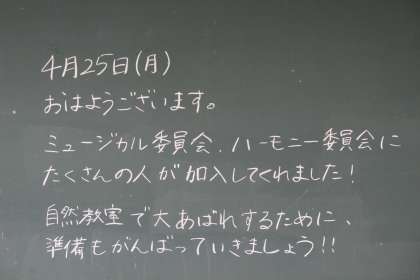 4月25日(月)
おはようございます。
ミュージカル委員会、ハーモニー委員会に
たくさんの人が加入してくれました!
自然教室で大あばれするために、
準備もがんばっていきましょう!!